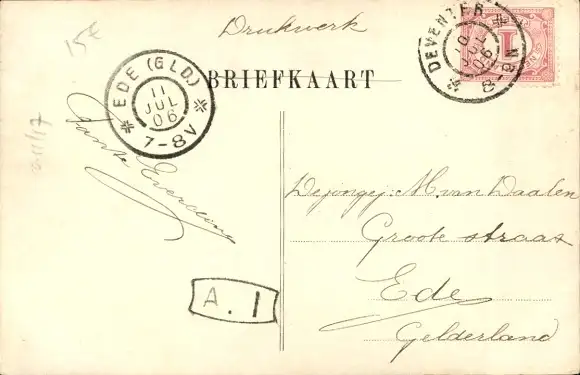 15€
Drukwerk
DEVENTER
10
JUL
06
8-9N
1
EDE (GLD)
11
JUL
06
7-8V
BRIEFKAART
Tante Everdina
Dejongej: M. van Daalen
Groote straat
Ede
Gelderland
A. 1